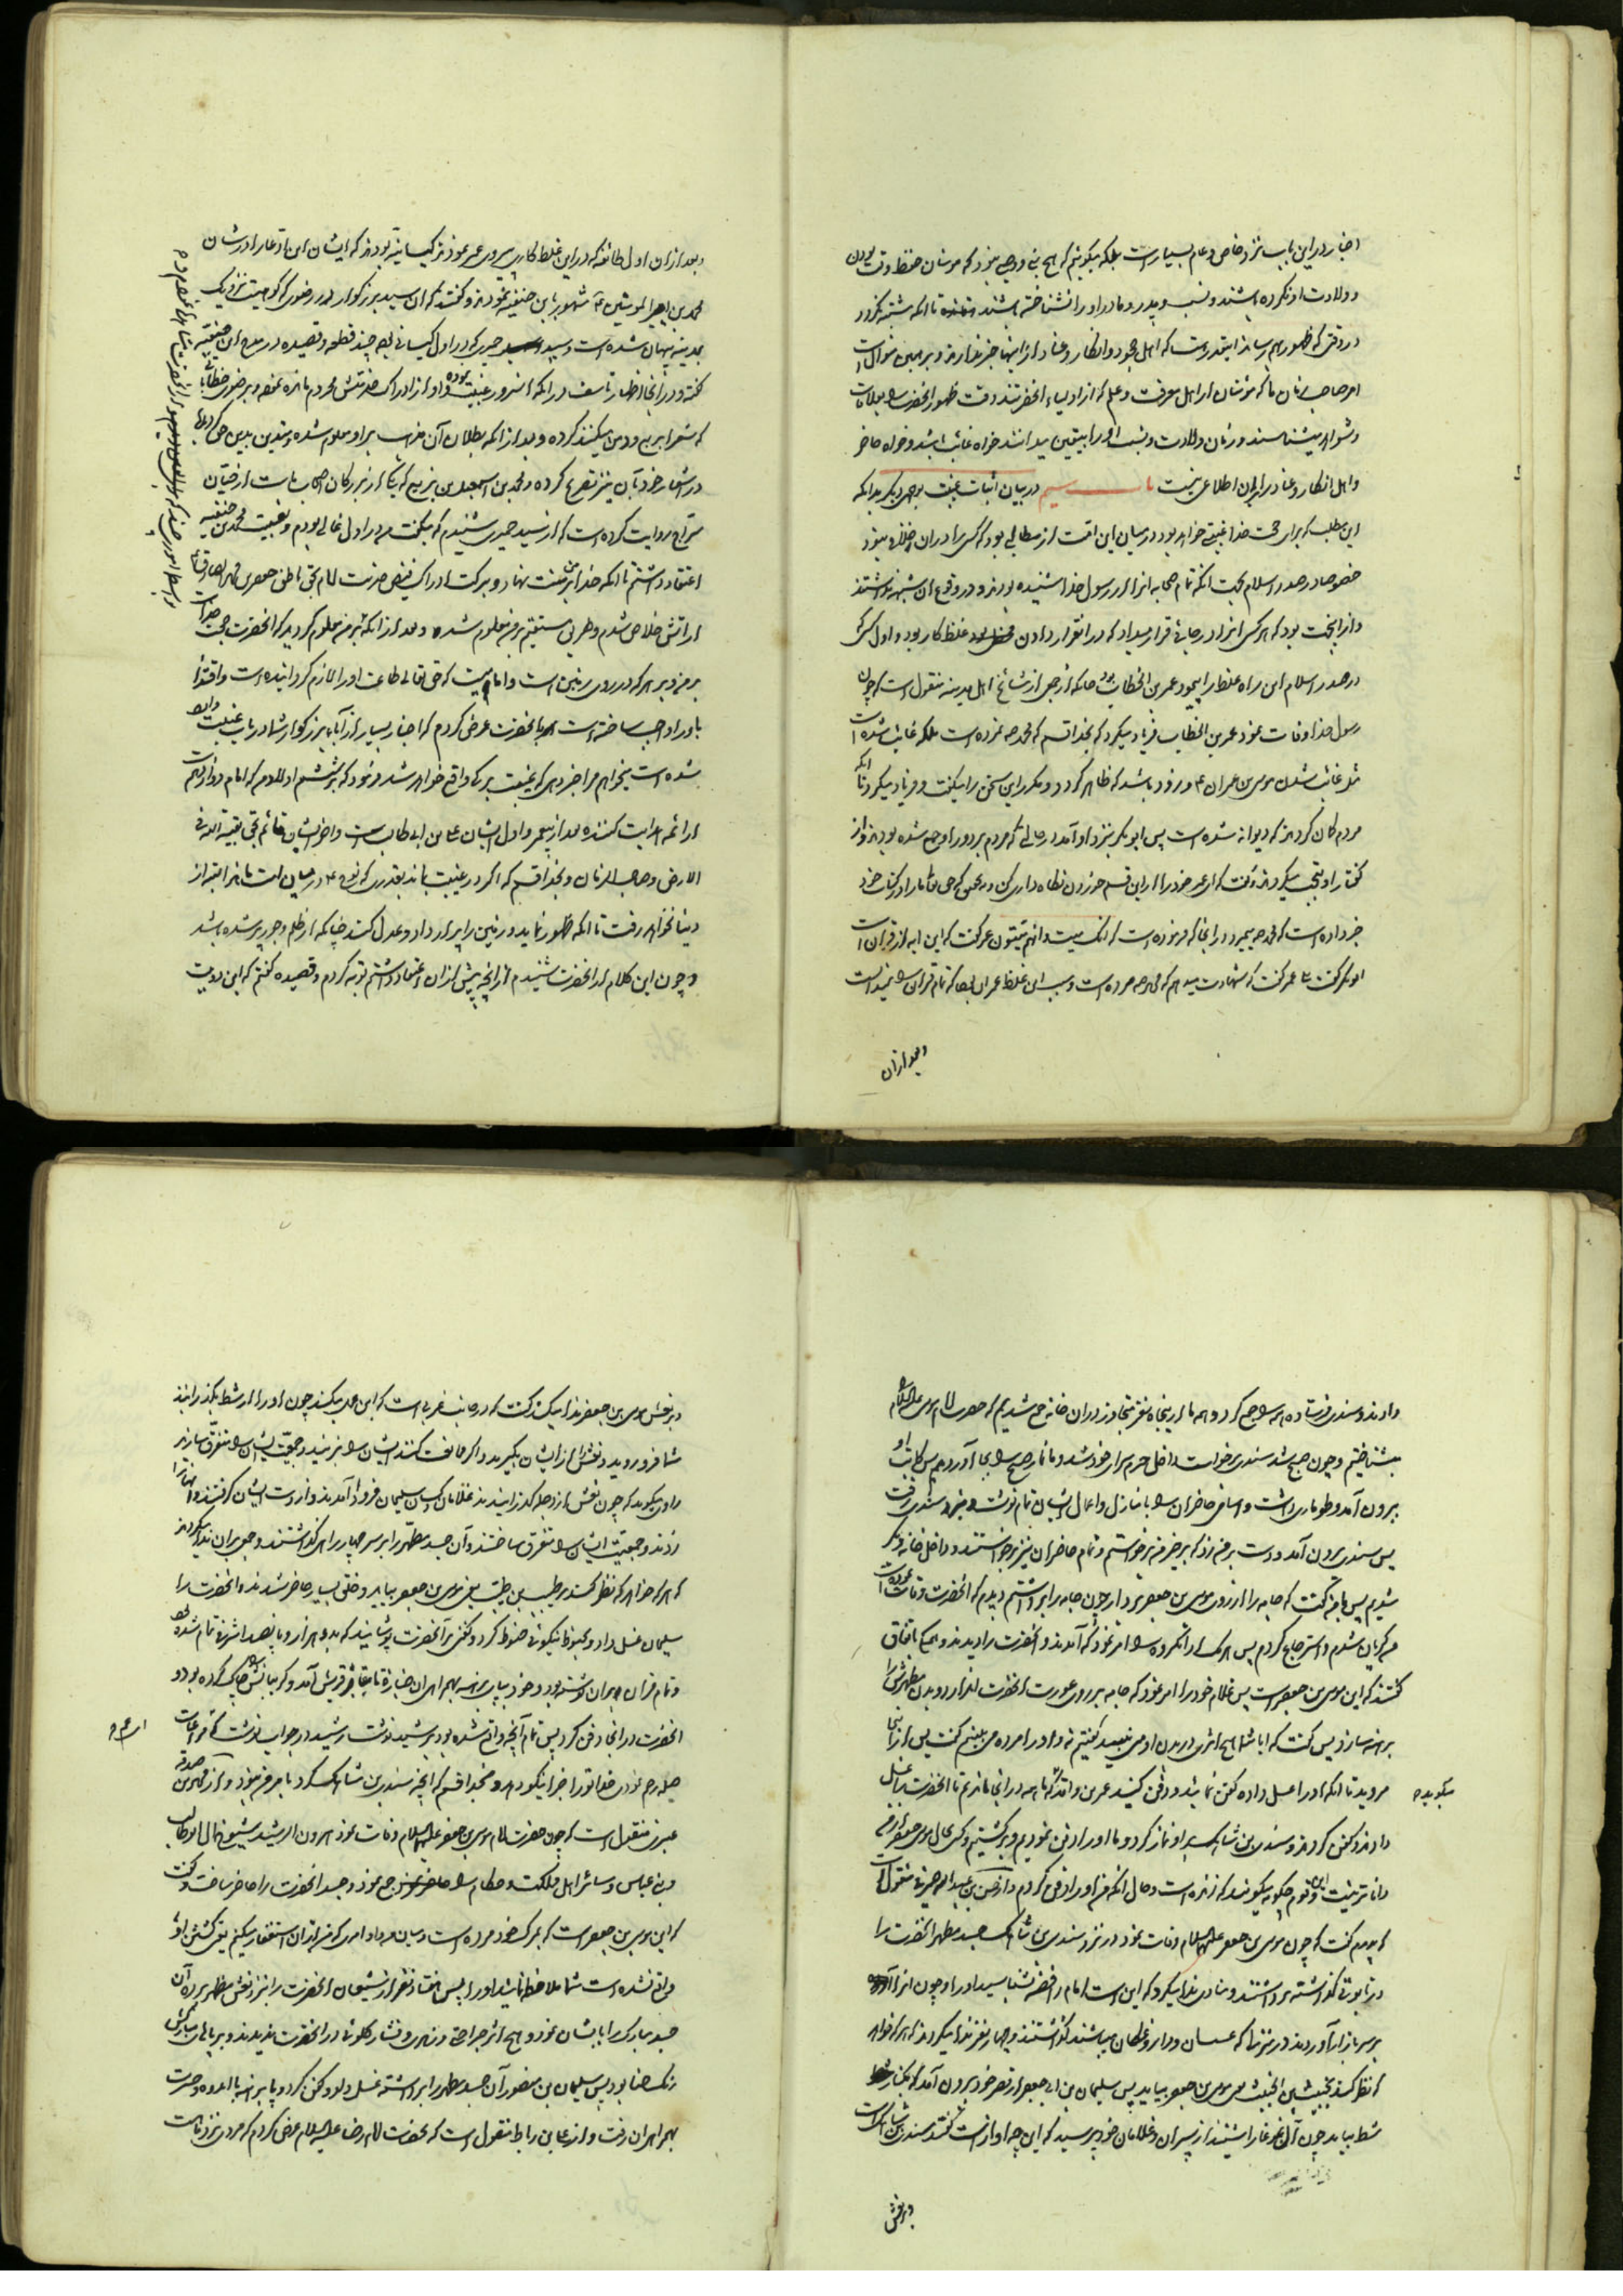 اخبار در این باب نزد خاص و عام بسیار است بلکه میگوئیم که هیچ نبی و وصیی نبود که مؤمنان حفظ وقت بودن
و ولادت او نکرده باشند و نسب و پدر و مادر او را نشناخته باشند تا آنکه مشتبه نگردد
در وقتی که ظهور بهم رساند اینقدر هست که اهل جحود و انکار و عناد از اینها خبر ندارند و بر همین منوال است
امر صاحب زمان ما که مؤمنان از اهل معرفت و علم که از اولیاء آنحضرتند وقت ظهور آنحضرت را بعلامات
و شواهد میشناسند و زمان ولادت و نسب او را بیقین میدانند خواه غائب باشد و خواه حاضر
و اهل انکار و عناد را بر آن اطلاعی نیست باب سیم در بیان اثبات غیبت بوجهی دیگر بدانکه
این مطلب که برای حجت خدا غیبتی خواهد بود در میان این امت از مطالبی بود که کسی را در آن خلاف نبود
خصوصا در صدر اسلام بجهت آنکه تمام صحابه آنرا از رسول خدا شنیده بودند و در وقوع آن شبهه نداشتند
و از اینجهت بود که هر کس آنرا در جائی قرار میداد که در آن قرار دادن غلط کار بود و اول کسی که
در صدر اسلام این راه غلط را پیمود عمر بن الخطاب بود چنانکه از جمعی از مشایخ اهل مدینه منقول است که چون
رسول خدا وفات نمود عمر بن الخطاب فریاد میکرد که بخدا قسم که محمد ص نمرده است بلکه غائب شده است
مثل غائب شدن موسی بن عمران ع و زود باشد که ظاهر گردد و مکرر این سخن را میگفت و فریاد میکرد تا آنکه
مردم گمان کردند که دیوانه شده است پس ابوبکر نزد او آمد در حالتی که مردم بر دور او جمع شده بودند و از
گفتار او تعجب میکردند و گفت که ای عمر خود را از این قسم خوردن نگاه دار
خبر داده است که محمد ص میمیرد در آنجا که فرموده است که انک میت و انهم میتون عمر گفت که این آیه از قرآن است
ابوبکر گفت بلی عمر گفت که شهادت میدهم که محمد ص مرده است و سبب این غلط عمر آن بود که تمام قرآن را نمیدانست
و بعد از آن
و بعد از آن اول طائفه که در این غلط کاری پیروی عمر نمودند کیسانیه بودند که ایشان این ادعا را در شأن
محمد بن امیر المؤمنین ع مشهور بابن حنفیه نمودند و گفتند که آن سید بزرگوار در رضوی که کوهیست نزدیک
بمدینه پنهان شده است و سید حمیری که در اول کیسانی بود چند قطعه و قصیده در مدح ابن حنفیه
گفته و در آنجا اظهار تأسف
که شعرا
در اشعار خود بآن نیز تصریح کرده و محمد بن اسمعیل بن بزیع که یکی از بزرگان اصحاب ماست از حیان
سراج روایت کرده است که از سید حمیری شنیدم که میگفت من در اول غالی بودم و بغیبت محمد بن حنفیه
اعتقاد داشتم تا آنکه خدا بر من منت نهاد و ببرکت ادراک فیض خدمت امام بحق ناطق جعفر بن محمد الصادق ع
از آتش خلاص شدم و طریق مستقیم بر من معلوم شد و بعد از آنکه بر من معلوم گردید که آنحضرت حجت خداست
بر من و بر هر که در روی زمین است و امامیست که حق تعالی طاعت او را لازم گردانیده است و اقتدا
باو را واجب ساخته است بآنحضرت عرض کردم که اخبار بسیار از آباء بزرگوار شما در باب غیبت وارد
شده است میخواهم مرا خبر دهی که غیبت بر که واقع خواهد شد فرمود که بر ششم اولاد من که امام دوازدهم است
از ائمه هدایت کننده بعد از پیغمبر و اول ایشان علی بن ابی طالب است و آخر ایشان قائم بحق بقیة الله فی
الارض و صاحب الزمان و بخدا قسم که اگر در غیبت بماند بقدری که نوح ع در میان امت ماند البته از
دنیا نخواهد رفت تا آنکه ظهور نماید و زمین را پر از داد و عدل کند چنانکه از ظلم و جور پر شده باشد
و چون این کلام از آنحضرت شنیدم از آنچه پیش از آن اعتقاد داشتم توبه کردم و قصیده گفتم که این دو بیت
دادند و سندی فرستاد همه را جمع کرد و همه ما که از پنجاه نفر متجاوز در آن خانه جمع شدیم که حضرت امام موسی علیه السلام
بشناختیم و چون صبح شد سندی برخواست و داخل حرم سرای خود شد و ما نماز صبح را بجا آوردیم پس کاتب او
بیرون آمد و طوماری داشت و اسامی حاضران را با منازل و اعمال ایشان تمام نوشت و نزد سندی رفت
پس سندی بیرون آمد و دست بر من زد که برخیز من برخواستم و تمام حاضران نیز برخواستند و داخل خانه دیگر
شدیم پس با من گفت که جامه را از روی موسی بن جعفر بردار چون جامه را برداشتم دیدم که آنحضرت وفات نموده است
من گریان شدم و استرجاع کردم پس هر یک از آن گروه را امر نمود که آمدند و آنحضرت را دیدند و همگی باتفاق
گفتند که این موسی بن جعفر است پس غلام خود را امر نمود که جامه بر روی عورت آنحضرت انداز و بدن مطهرش را
برهنه سازد پس گفت که آیا شما هیچ اثری در بدن او می بینید گفتیم نه و او را مرده می بینیم گفت پس از اینجا
مروید تا آنکه او را غسل داده کفن نمائید و دفن کنید عمر بن واقد گوید که ما همه در آنجا ماندیم تا آنحضرت را غسل
میگوید
دادند و کفن کردند و سندی بن شاهک بر او نماز کرد و ما او را دفن نمودیم و برگشتیم و کسی بحال موسی بن جعفر از من
داناتر نیست و این قوم چگونه میگویند که زنده است و حال آنکه من او را دفن کردم و از حسن بن عبد الله صیرفی منقول است
که پدرم گفت که چون موسی بن جعفر علیهما السلام وفات نمود در نزد سندی بن شاهک جسد مطهر آنحضرت را
در تابوتی گذاشته برداشتند و منادی ندا میکرد که این است امام رافضه بشناسید او را و چون آنرا
بر سر بازار آوردند در منزلی که عسسان و داروغگان میباشند گذاشتند و چهار نفر ندا میکردند که هر که خواهد
که نظر کند بخبیث بن الخبیث یعنی موسی بن جعفر بیاید پس سلیمان بن ابی جعفر از قصر خود بیرون آمد که بکنار
شط بیاید چون آن غوغا را شنید از پسران و غلامان خود پرسید که این چه آواز است گفتند سندی بن شاهک است
بر نعش
بر نعش موسی بن جعفر ندا میکند گفت که در جانب غربی است که این عمل میکند چون او را از شط بگذرانند
شما فرو روید و نعش را از ایشان بگیرید و اگر ممانعت کنند ایشان را بزنید و جمعیت ایشان را متفرق سازید
راوی میگوید که چون نعش را از دجله گذرانیدند غلامان و کسان سلیمان فرود آمدند و از دست ایشان گرفتند و آنها را
زدند و جمعیت ایشان را متفرق ساختند و آن جسد مطهر را بر سر چهار راهی گذاشتند و جمعی بر آن ندا میکردند
که هر که خواهد که نظر کند بر طیب بن طیب یعنی موسی بن جعفر بیاید و خلق بسیار حاضر شدند و آنحضرت را
سلیمان غسل داد و بحنوط نیکوئی حنوط کرد و کفنی بر آنحضرت پوشانید که بدو هزار و پانصد اشرفی تمام شده بود
و تمام قرآن بر آن نوشته بود و خود پیاده و پای برهنه بهمراهی آن جنازه تا مقابر قریش آمد و گریبانش را چاک کرده بود و
آنحضرت در آنجا دفن کرد پس تمام آنچه واقع شده بود برشید نوشت رشید در جواب نوشت که
صله رحم نمودی خدا تو را جزا نیکو دهد و بخدا قسم که آنچه سندی بن شاهک کرد بامر من نبود و از محمد بن صدقه
عنبری منقول است که چون حضرت امام موسی بن جعفر علیهما السلام وفات نمود هرون الرشید شیوخ آل ابو طالب
و بنی عباس و سائر اهل مملکت و حکام را جمع نمود و جسد آنحضرت را حاضر ساخت و گفت
که این موسی بن جعفر است که بمرگ خود مرده است و میان من و او امری که من از آن استغفار میکنم یعنی کشتن او
واقع نشده است شما ملاحظه نمائید او را پس هفتاد نفر از شیعیان آنحضرت را بنزد نعش مطهر بردند آن
جسد مبارک را بایشان نمود و هیچ اثر جراحتی و زهری و فشار گلوئی در آنحضرت ندیدند و بر پای مبارکش
رنگ حنا بود پس سلیمان بن منصور آن جسد مطهر را برداشته غسل داد و کفن کرد و پا برهنه با اندوه و حسرت
بهمراه آن رفت و از علی بن رباط منقول است که بحضرت امام رضا علیه السلام عرض کردم که مردی نزد ماست